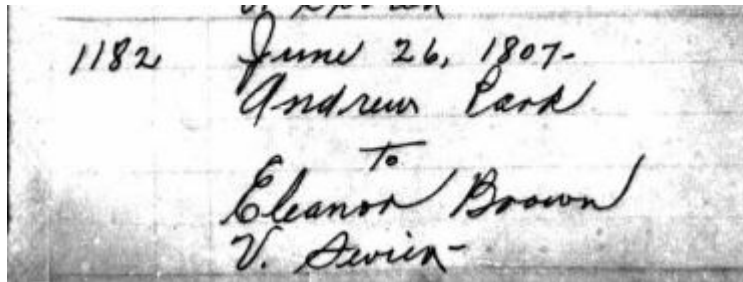 1182 June 26, 1807-
Andrew Park
To
Eleanor Brown
V. Sevier-